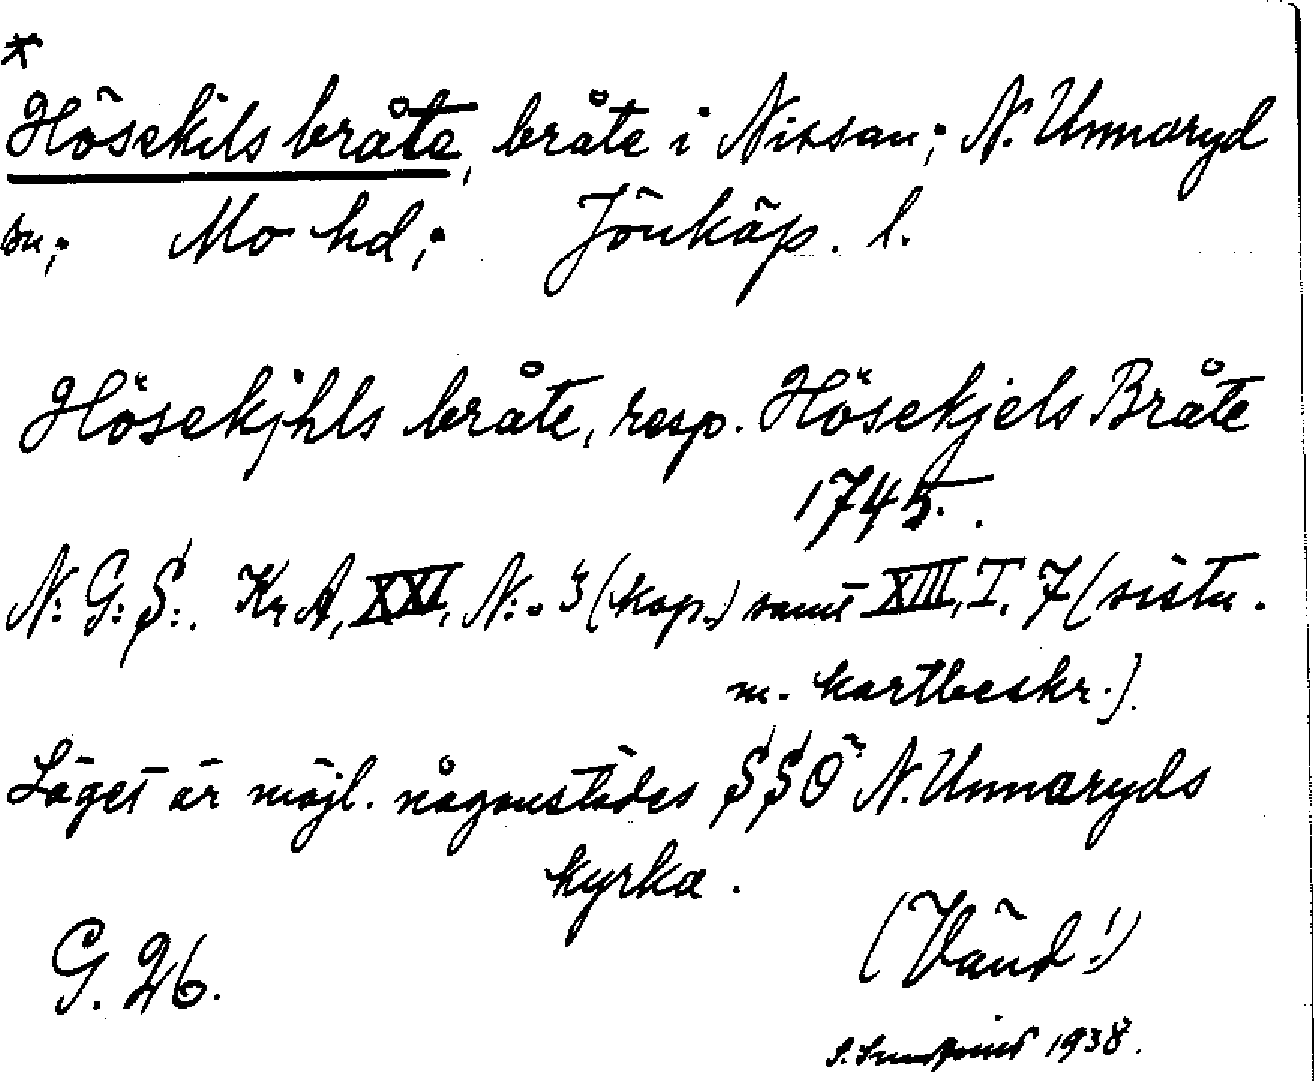 *
Hösekils bråte, bråte i Nissan; N. Unnaryd
sn; Mo hd; Jönköp. l.
Hösekjhls bråte, resp. Hösekjels Bråte
1745.
N: G: S:. Kr A, XXI, N:o 3 (kop.) samt XIII, I, 7 (sistn.
m. kartbeskr.).
Läget är möjl. någonstädes SSO N. Unnaryds
kyrka.
G. 26.
(Vänd!)
1938.